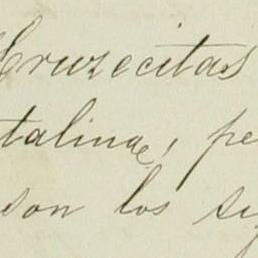 Cruzecitas
talina, pe
son los si